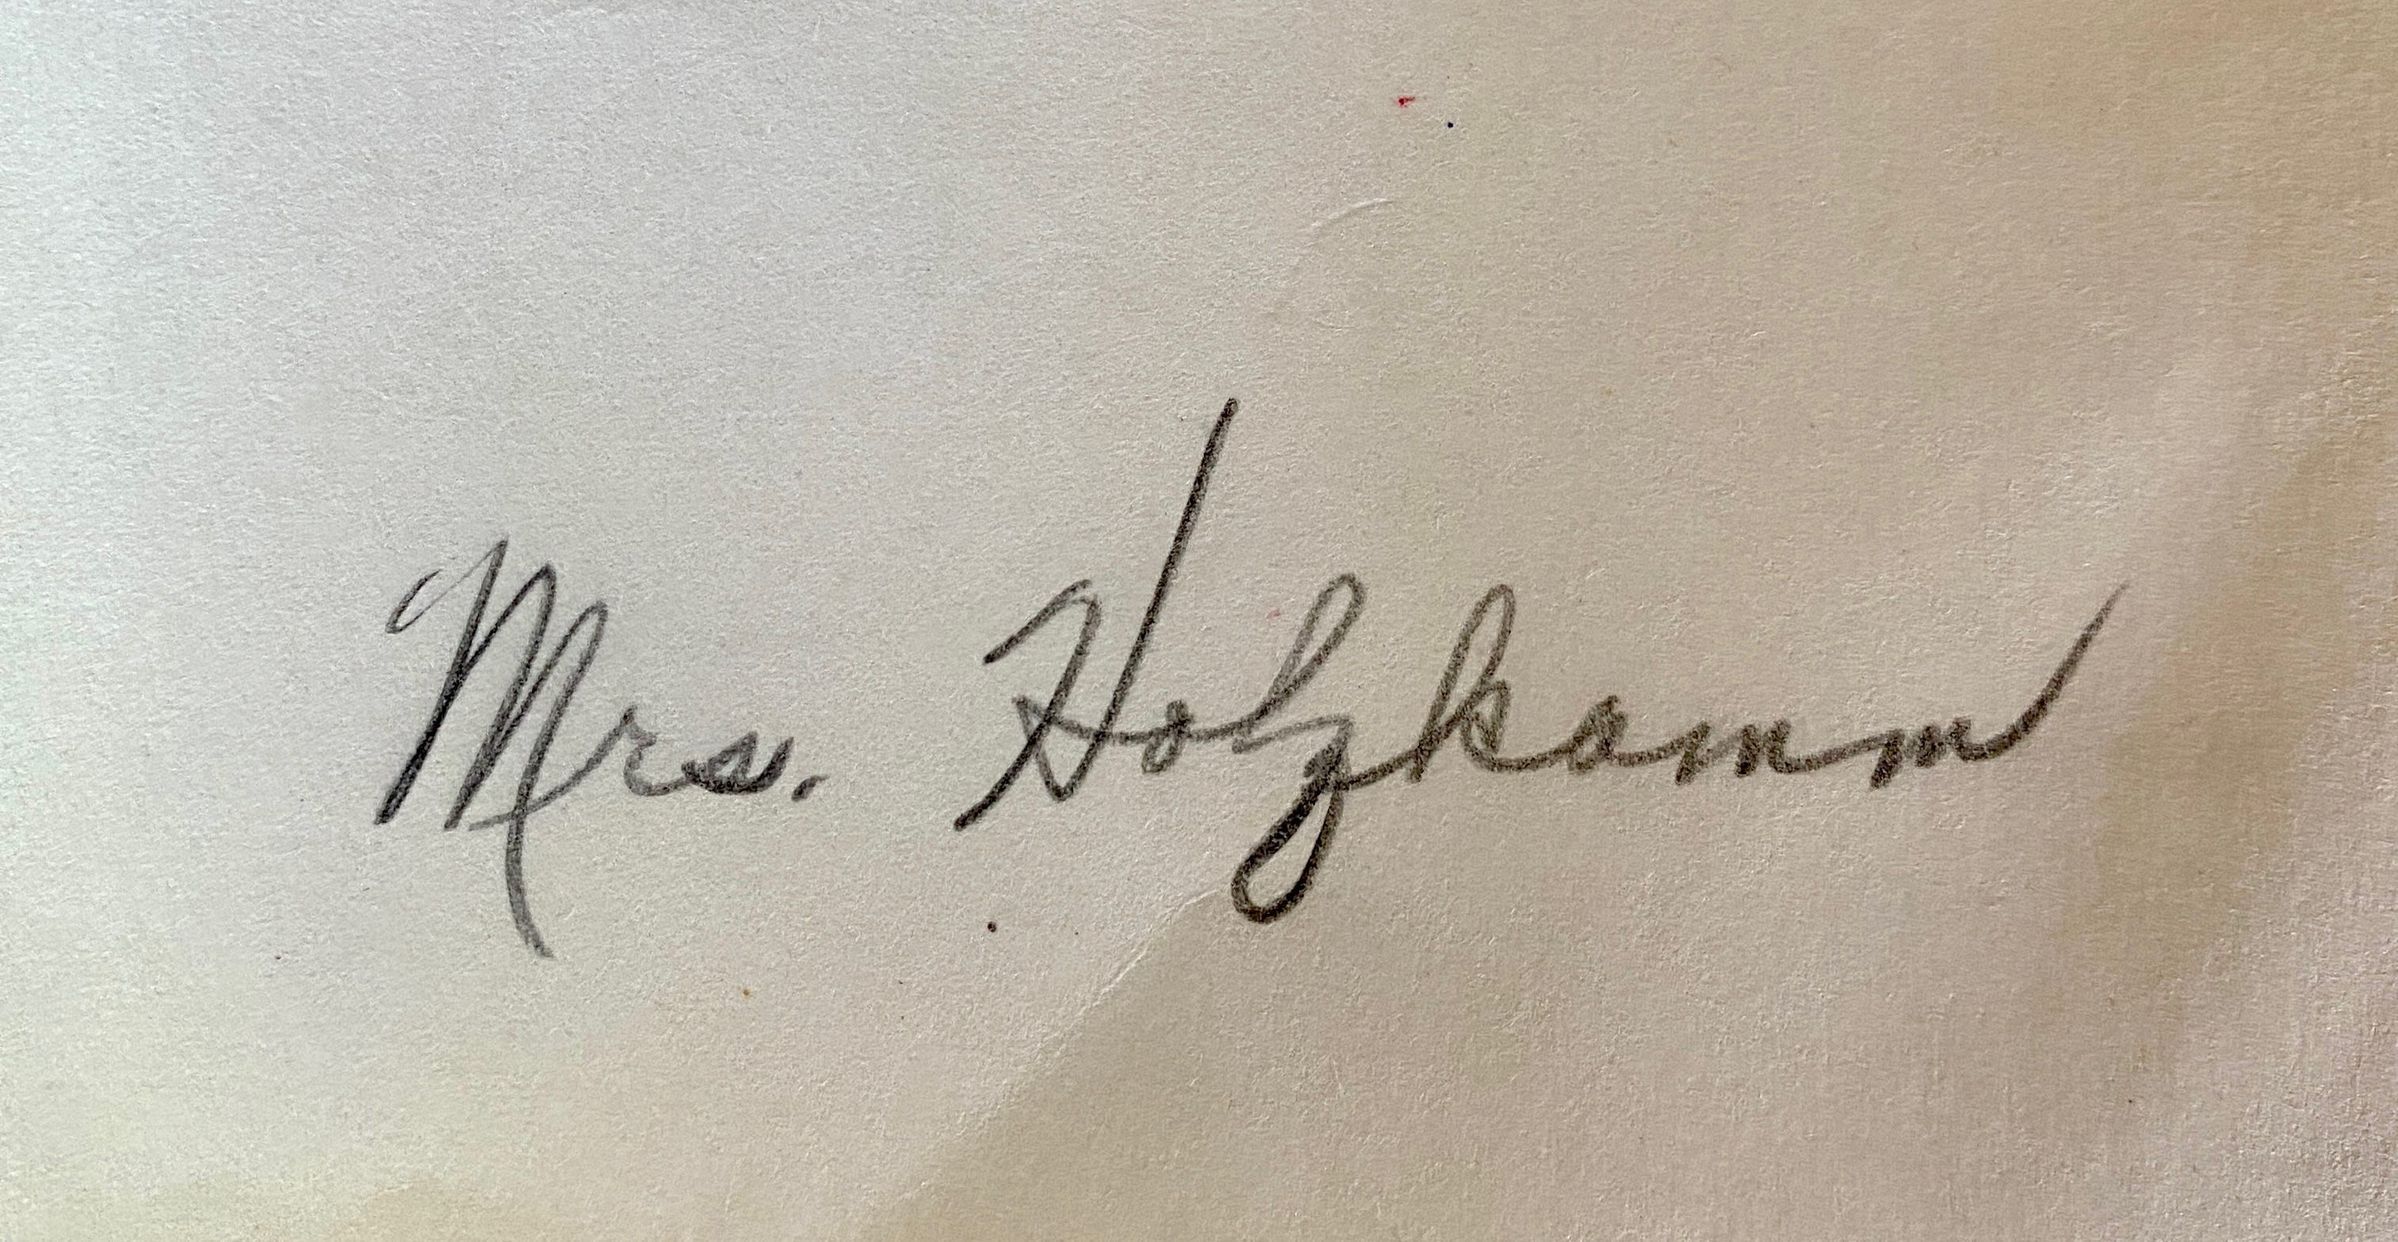 Mrs. Holzkamm